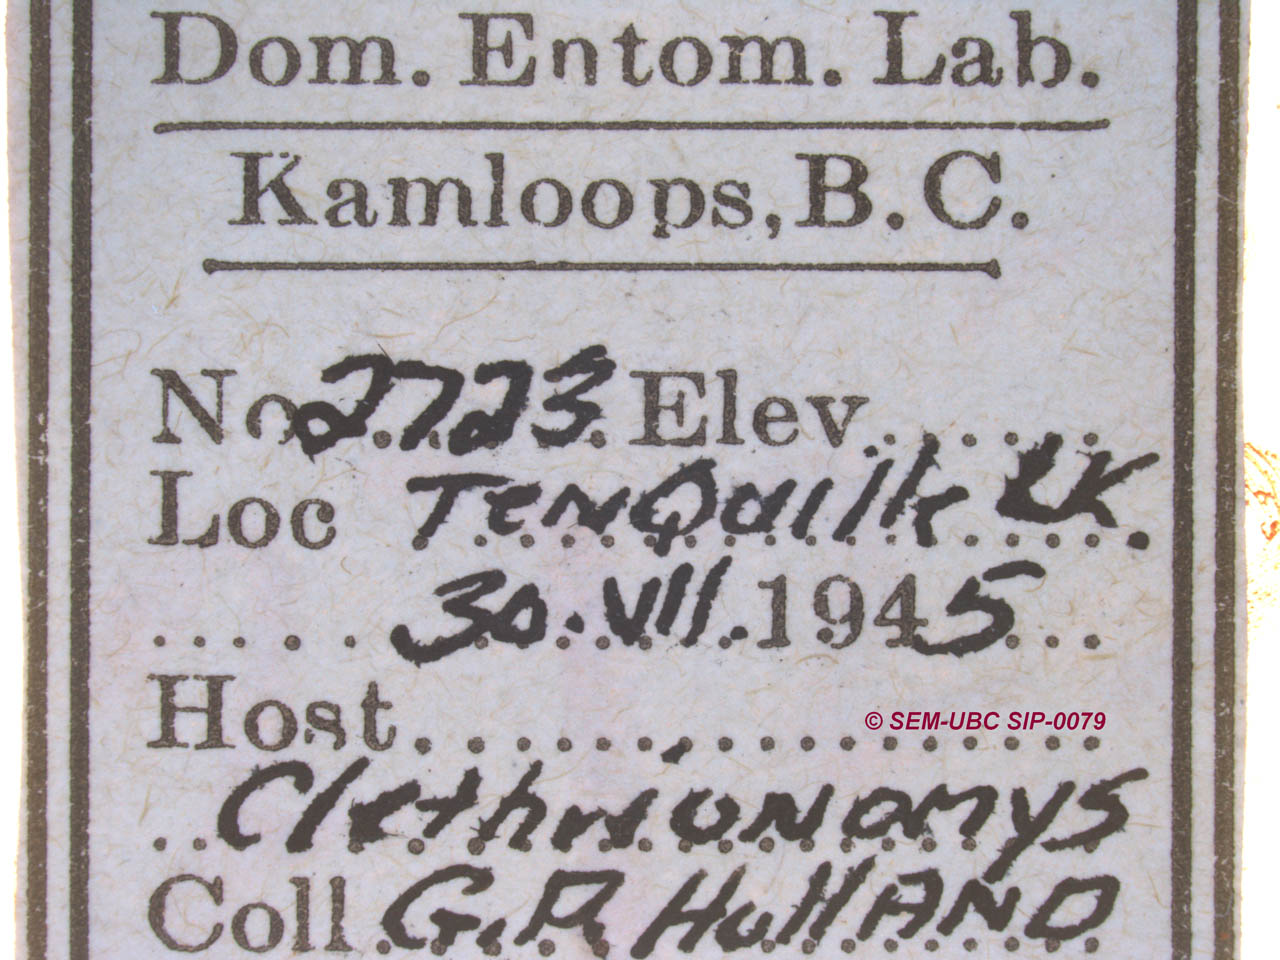 Dom. Entom. Lab.
Kamloops, B. C.
No 2723 Elev
Loc Tenquille Lk.
30. VII. 1945
Host
© SEM-UBC SIP-0079
Clethrionomys
Coll G.P. Holland